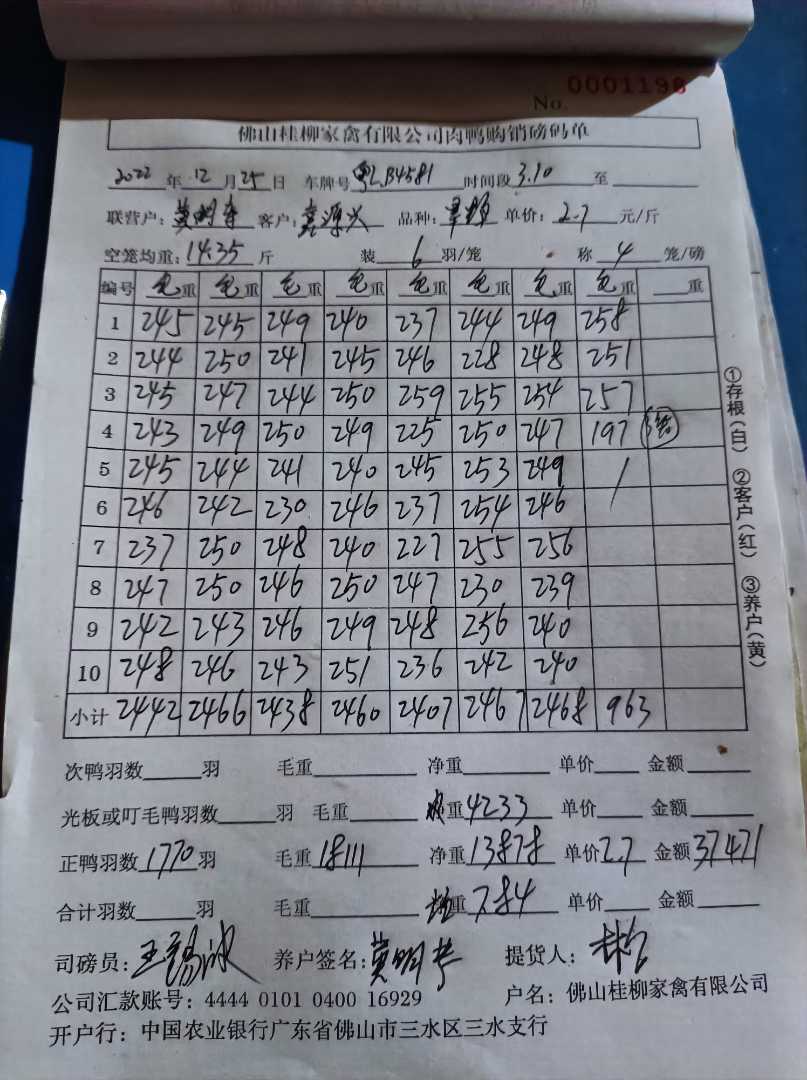 No. 0001198
佛山桂柳家禽有限公司肉鸭购销磅码单
2022 年 12 月 25 日 车牌号 粤LB4581 时间段 3.10 至
联营户: 黄明 客户: 嘉源兴 品种: 单价: 2.7 元/斤
空笼均重: 14.35 斤 装 6 羽/笼 称 4 笼/磅
编号 毛重 毛重 毛重 毛重 毛重 毛重 毛重 毛重 重
1 245 245 249 240 237 244 249 258
2 244 250 241 245 246 228 248 251
3 245 247 244 250 259 255 254 257
4 243 249 250 249 225 250 247 197
5 245 244 241 240 245 253 249 /
6 246 242 230 246 237 254 246
7 237 250 248 240 227 255 256
8 247 250 246 250 247 230 239
9 242 243 246 249 248 256 240
10 248 246 243 251 236 242 240
小计 2442 2466 2438 2460 2407 2467 2468 963
①存根(白) ②客户(红) ③养户(黄)
次鸭羽数 羽 毛重 净重 单价 金额
光板或叮毛鸭羽数 羽 毛重 重 4233 单价 金额
正鸭羽数 1770 羽 毛重 18111 净重 13878 单价 2.7 金额 37471
合计羽数 羽 毛重 均重 7.84 单价 金额
司磅员: 王锡 养户签名: 黄明 提货人:
公司汇款账号: 4444 0101 0400 16929 户名: 佛山桂柳家禽有限公司
开户行: 中国农业银行广东省佛山市三水区三水支行